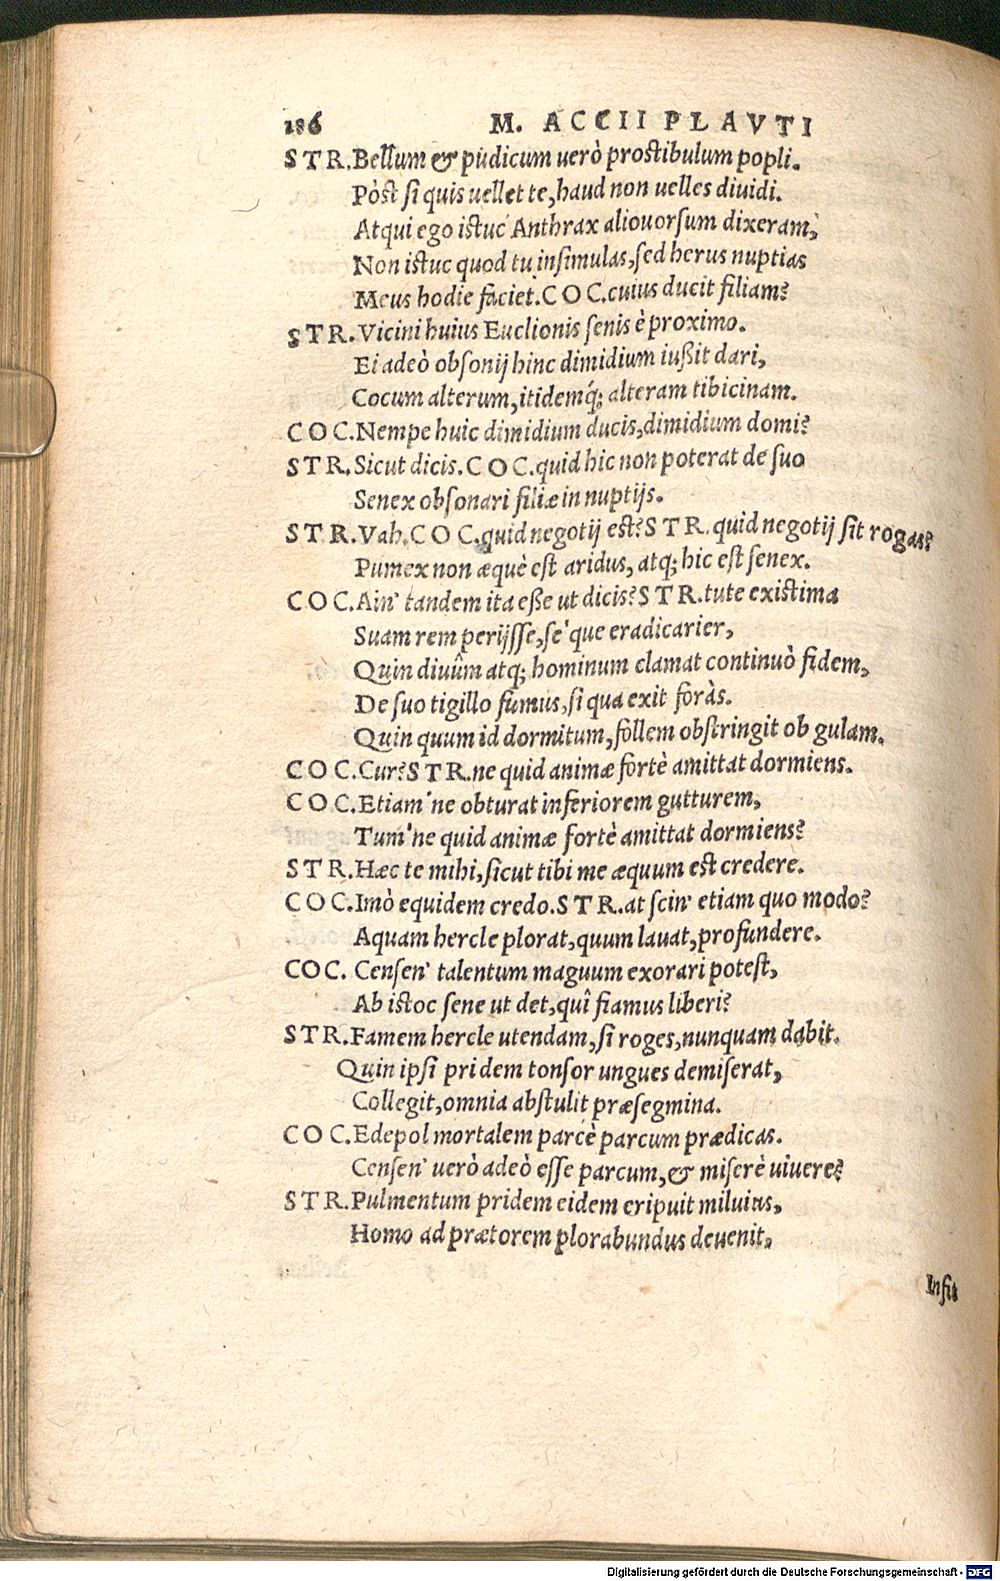 186 M. ACCII PLAVTI
STR. Bellum & pudicum uerò prostibulum popli.
Pòst si quis uellet te, haud non uelles diuidi.
Atqui ego istuc Anthrax aliouorsum dixeram,
Non istuc quod tu insimulas, sed herus nuptias
Meus hodie faciet. COC. cuius ducit filiam?
STR. Vicini huius Euclionis senis è proximo.
Ei adeò obsonij hinc dimidium iußit dari,
Cocum alterum, itidemq́; alteram tibicinam.
COC. Nempe huic dimidium ducis, dimidium domi?
STR. Sicut dicis. COC. quid hic non poterat de suo
Senex obsonari filiæ in nuptijs.
STR. Vah. COC. quid negotij est? STR. quid negotij sit rogas?
Pumex non æquè est aridus, atq; hic est senex.
COC. Ain' tandem ita eße ut dicis? STR. tute existima
Suam rem perijsse, se'que eradicarier,
Quin diuûm atq; hominum clamat continuò fidem,
De suo tigillo fumus, si qua exit foràs.
Quin quum id dormitum, follem obstringit ob gulam.
COC. Cur? STR. ne quid animæ fortè amittat dormiens.
COC. Etiam'ne obturat inferiorem gutturem,
Tum'ne quid animæ fortè amittat dormiens?
STR. Hæc te mihi, sicut tibi me æquum est credere.
COC. Imò equidem credo. STR. at scin' etiam quo modo?
Aquam hercle plorat, quum lauat, profundere.
COC. Censen' talentum maguum exorari potest,
Ab istoc sene ut det, quî fiamus liberi?
STR. Famem hercle utendam, si roges, nunquam dabit.
Quin ipsi pridem tonsor ungues demiserat,
Collegit, omnia abstulit præsegmina.
COC. Edepol mortalem parcè parcum prædicas.
Censen' uerò adeò esse parcum, & miserè uiuere?
STR. Pulmentum pridem eidem eripuit miluius,
Homo ad prætorem plorabundus deuenit,
Infit
Digitalisierung gefördert durch die Deutsche Forschungsgemeinschaft - DFG